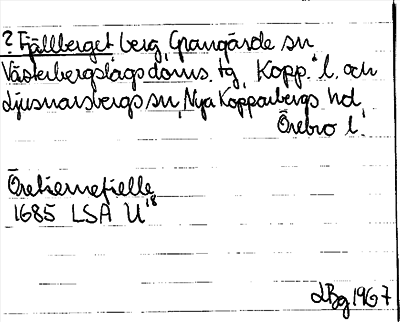 ? Fjällberget berg, Grangärde sn
Västerbergslags doms. tg, Kopp. l. och
Ljusnarsbergs sn, Nya Kopparbergs hd,
Örebro l.
Örekiernefielle
1685 LSA U18
LBg 1967